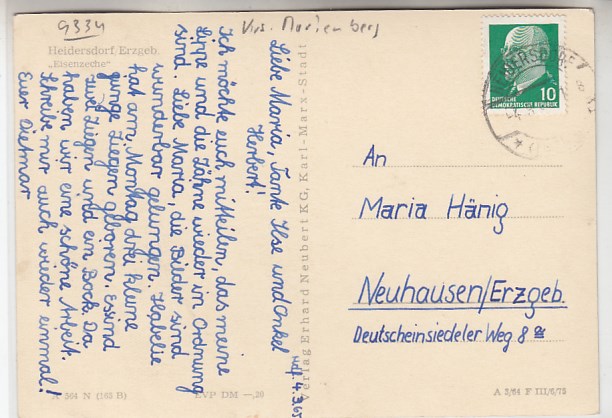 9334
Krs. Marienberg
Heidersdorf/Erzgeb.
„Eisenzeche“
Liebe Maria, Tante Ilse und Onkel
Herbert!
Ich möchte euch mitteilen, das meine
Lippe und die Zähne wieder in Ordnung
sind. Liebe Maria, die Bilder sind
wunderbar gelungen. Isabelle
hat am Montag drei kleine
junge Ziegen geboren. Es sind
zwei Ziegen und ein Bock. Da
haben wir eine schöne Arbeit.
Schreibe mir auch wieder einmal!
Euer Dietmar
4.3.65
Verlag Erhard Neubert KG, Karl-Marx-Stadt
A 364 N (103 B)
EVP DM —,20
10
DEUTSCHE
DEMOKRATISCHE REPUBLIK
An
Maria Hänig
Neuhausen/Erzgeb.
Deutscheinsiedeler Weg 8
A 3/64 F III/6/73